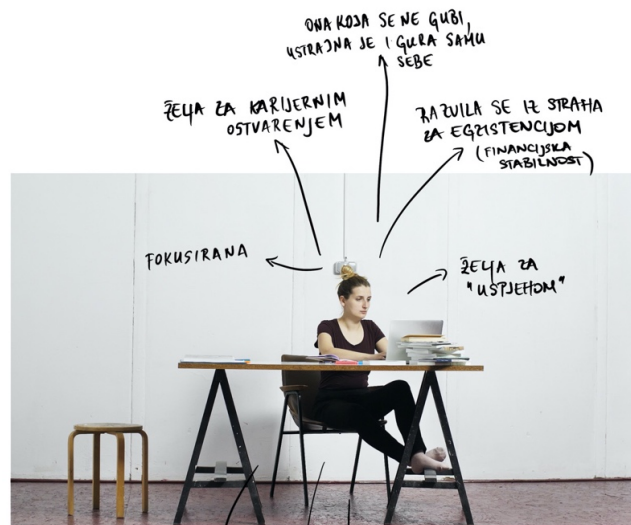 ONA KOJA SE NE GUBI,
USTRAJNA JE I GURA SAMU
SEBE
ŽELJA ZA KARIJERNIM
OSTVARENJEM
RAZVILA SE IZ STRAHA
ZA EGZISTENCIJOM
(FINANCIJSKA
STABILNOST)
FOKUSIRANA
ŽELJA ZA
"USPJEHOM"